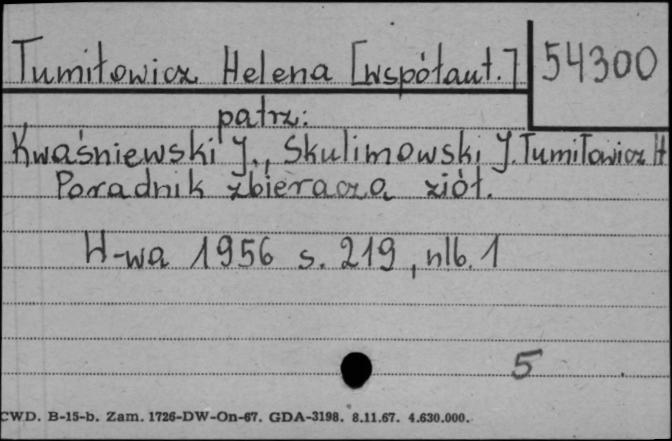 Tumiłowicz Helena [współaut.] 54300
patrz:
Kwaśniewski J., Skulimowski J. Tumiłowicz H
Poradnik zbieracza ziół.
W-wa 1956 s. 219, nlb. 1
5
CWD. B-15-b. Zam. 1726-DW-On-67. GDA-3198. 8.11.67. 4.630.000.